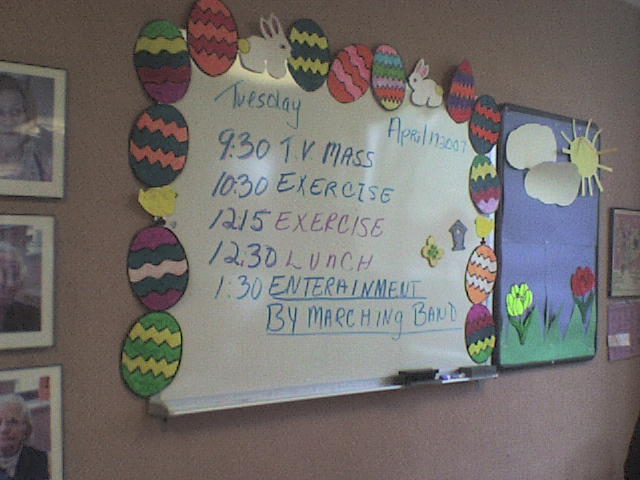 Tuesday
April 17 2007
9:30 T.V. MASS
10:30 EXERCISE
12:15 EXERCISE
12:30 LUNCH
1:30 ENTERAINMENT
BY MARCHING BAND